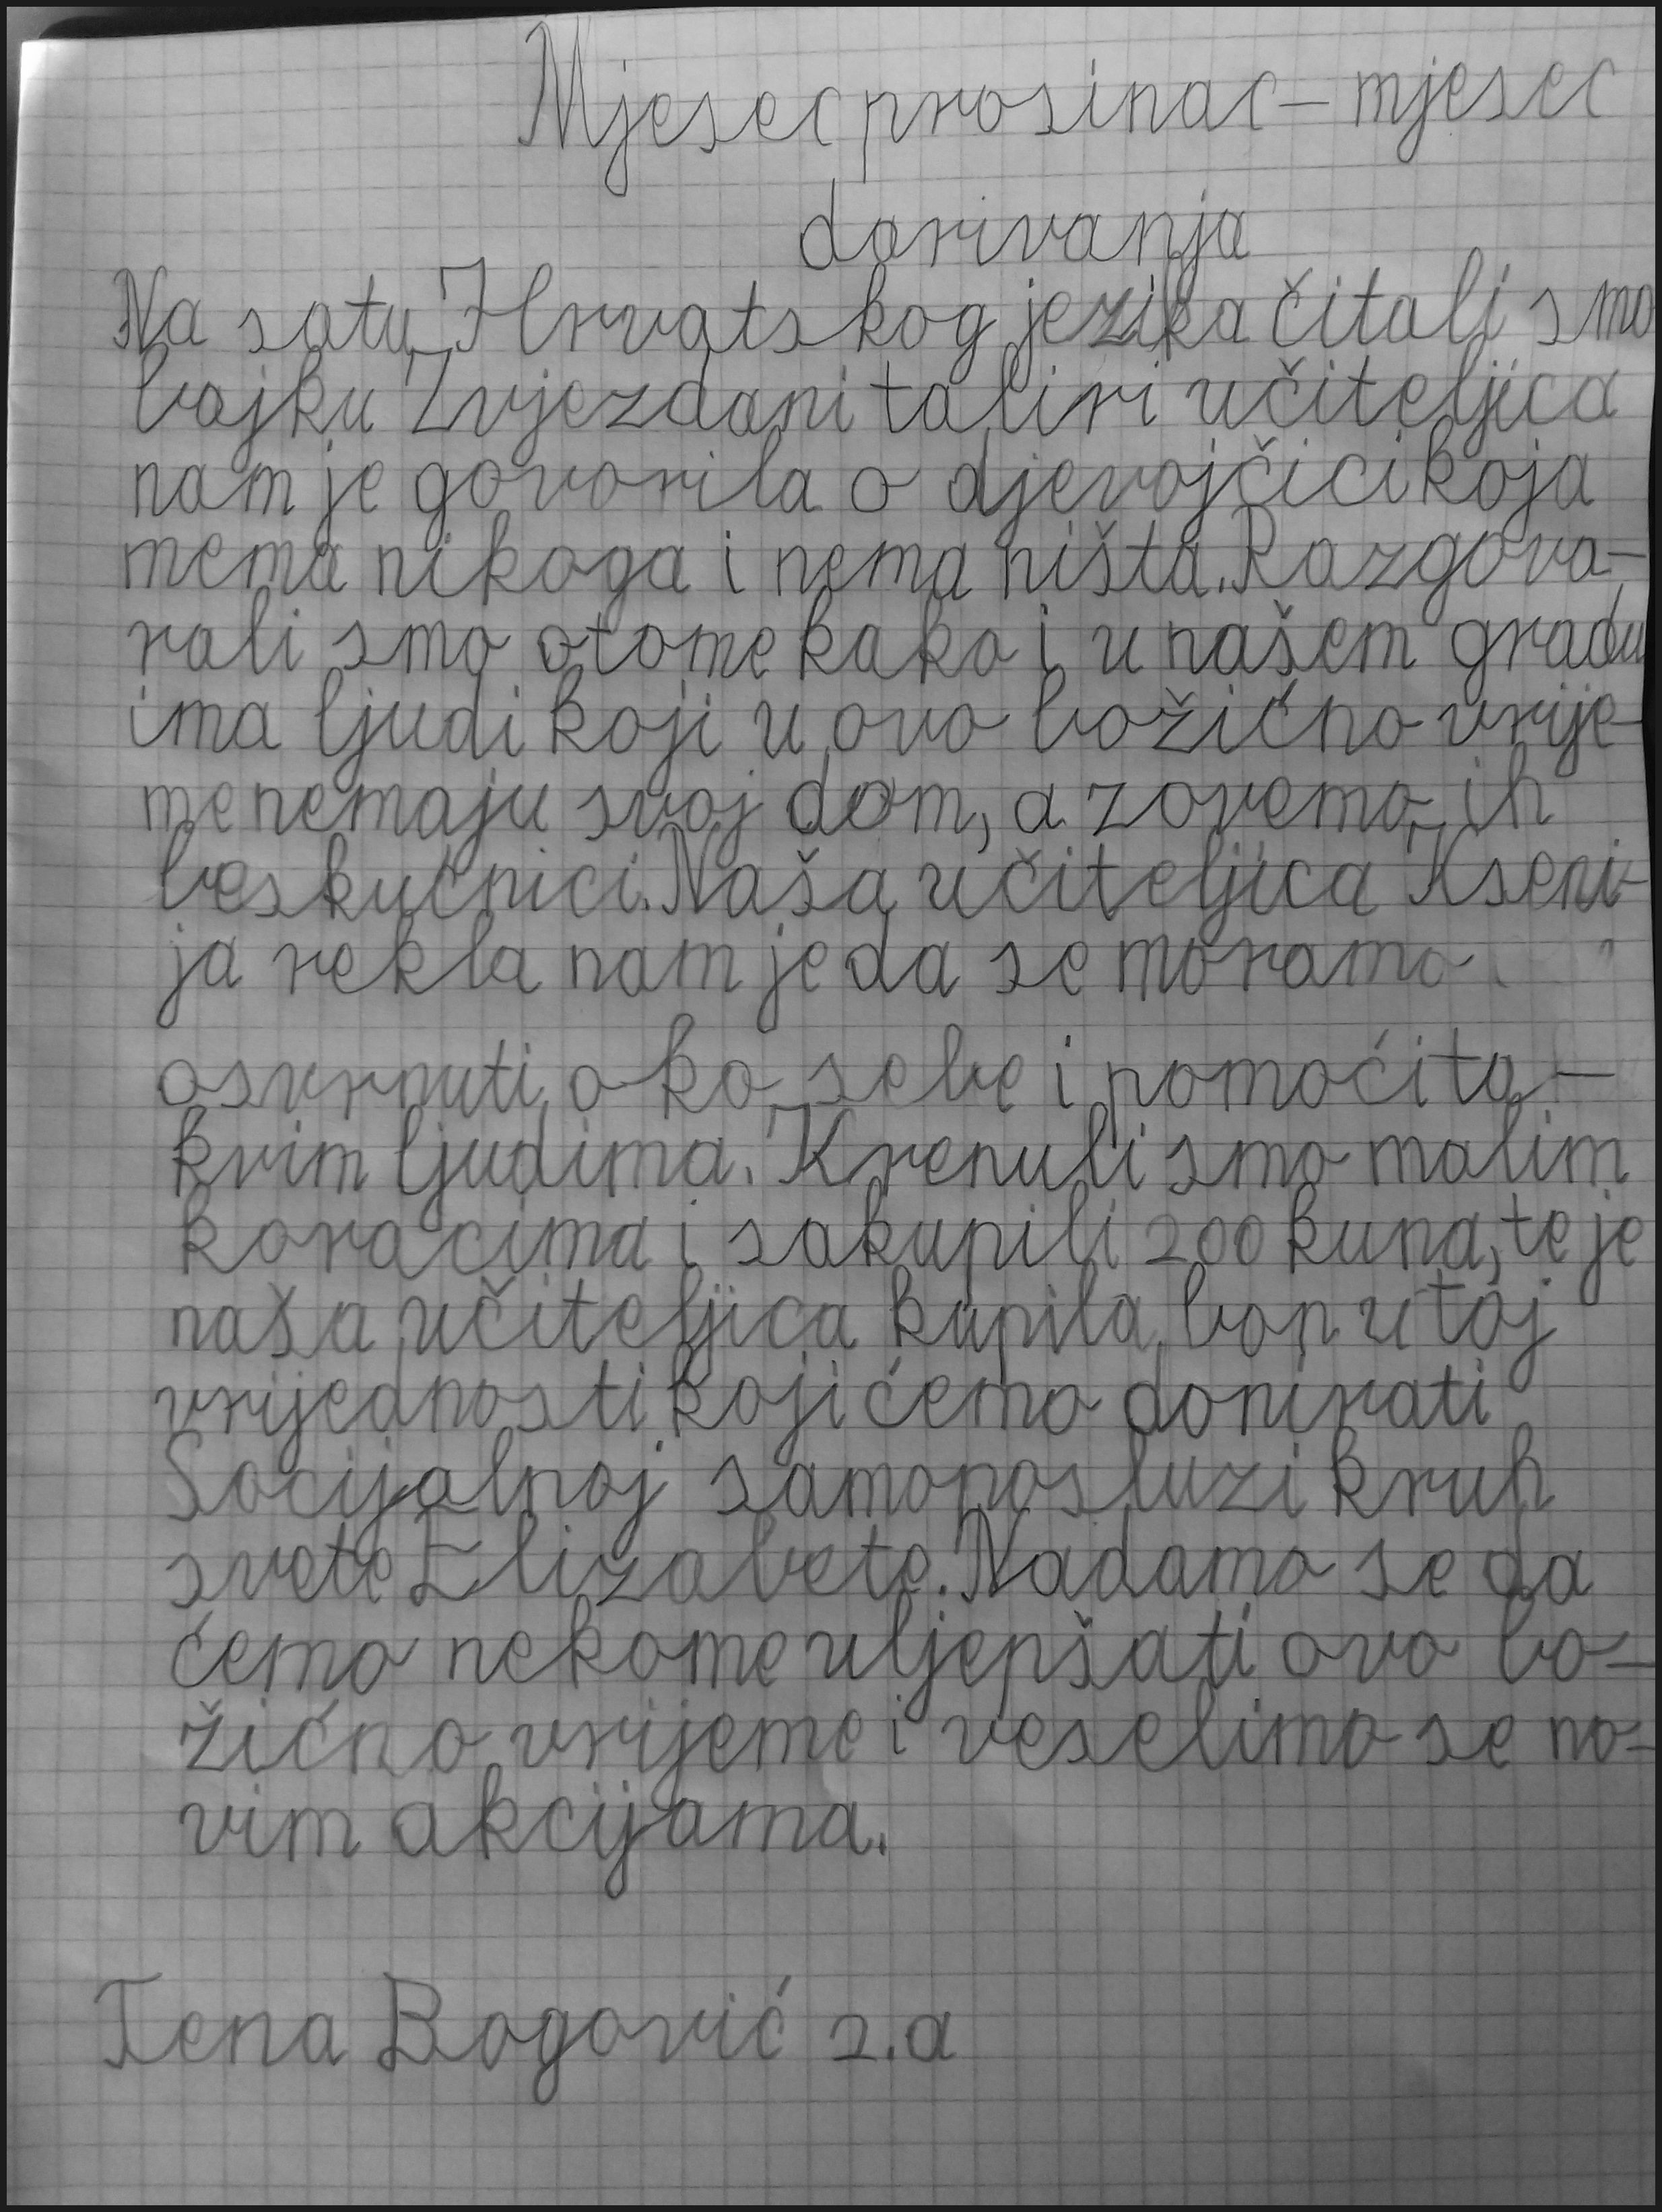 Mjesec prosinac – mjesec
darivanja
Na satu Hrvatskog jezika čitali smo
bajku Zvjezdani taliri učiteljica
nam je govorila o djevojčici koja
mema nikoga i nema ništa. Razgova-
rali smo o tome kako i u našem gradu
ima ljudi koji u ovo božićno vrije-
me nemaju svoj dom, a zovemo ih
beskućnici. Naša učiteljica Kseni-
ja rekla nam je da se moramo
osvrnuti oko sebe i pomoći ta-
kvim ljudima. Krenuli smo malim
koracima i sakupili 200 kuna, te je
naša učiteljica kupila bon u toj
vrijednosti koji ćemo donirati
Socijalnoj samoposluzi kruh
svete Elizabete. Nadamo se da
ćemo nekome uljepšati ovo bo-
žićno vrijeme i veselimo se no-
vim akcijama.
Tena Bogović 2.a